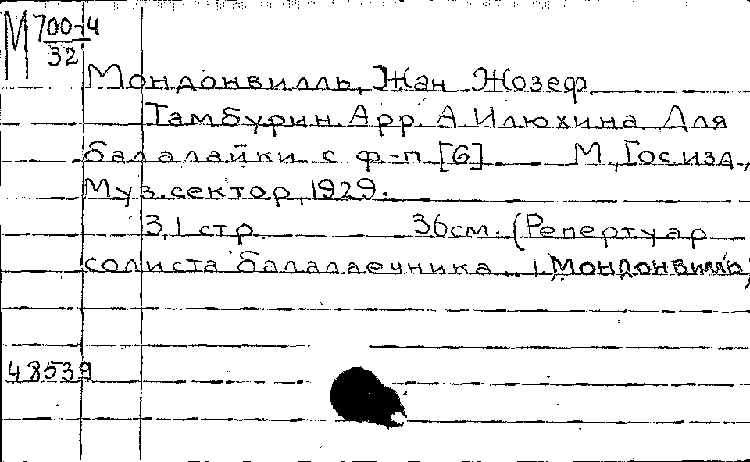 М 700-4
32
Мондонвилль, Жан Жозеф
Тамбурин. Арр. А. Илюхина. Для
балалайки с ф-п [G] М., Гос.изд.,
Муз.сектор, 1929.
3,1 стр. 36см. (Репертуар
солиста балалаечника
48539